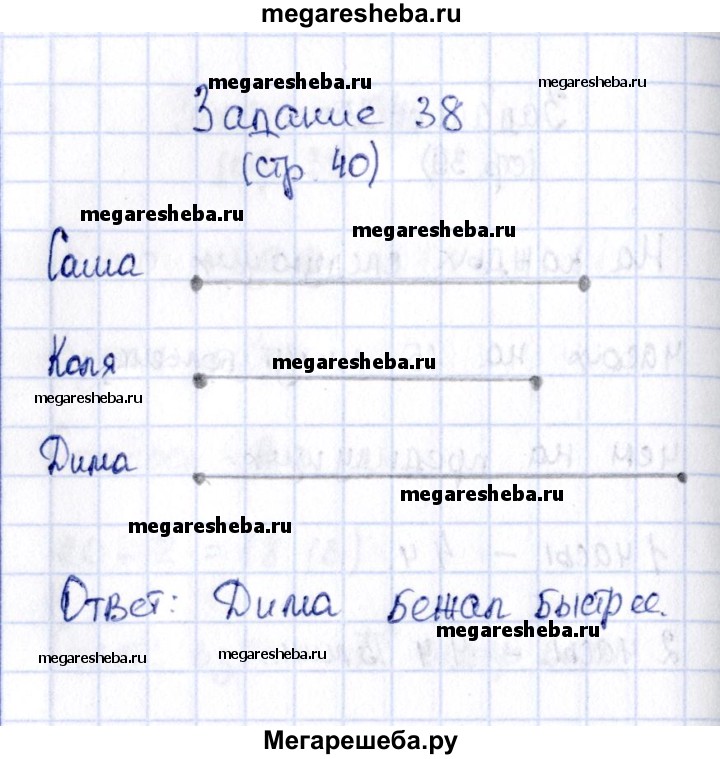 megaresheba.ru
megaresheba.ru
megaresheba.ru
Задание 38
(стр. 40)
megaresheba.ru
megaresheba.ru
Саша
Коля
megaresheba.ru
megaresheba.ru
Дима
megaresheba.ru
megaresheba.ru
Ответ: Дима бежал быстрее.
megaresheba.ru
megaresheba.ru
megaresheba.ru
Мегарешеба.ру